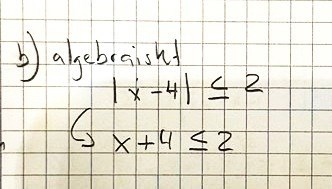 b) algebraiskt
|x-4| ≤ 2
↳ x+4 ≤ 2